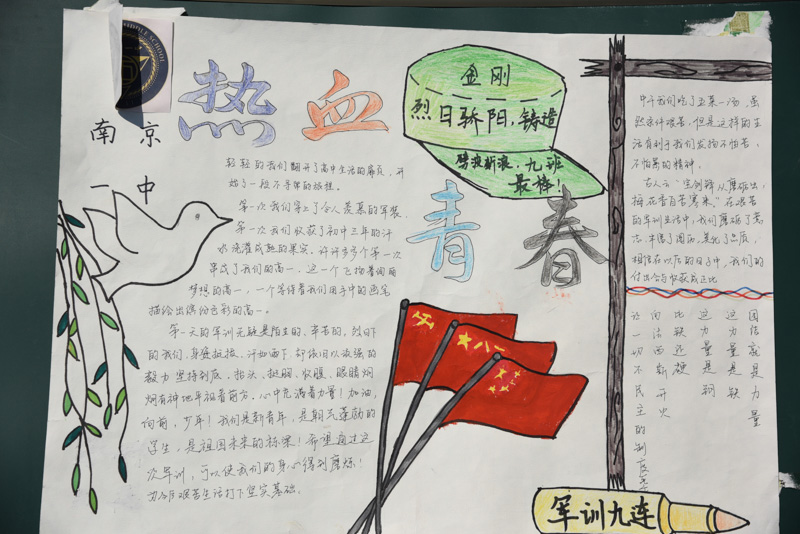 南京
一中
热血
青春
金刚
烈日骄阳,铸造
劈波斩浪,九班
最棒!
轻轻的我们翻开了高中生活的扉页,开
始了一段不寻常的旅程。
第一次我们穿上了令人羡慕的军装,
第一次我们收获了初中三年的汗
水浇灌成熟的果实。许许多多个第一次
组成了我们的高一,这一个飞扬着绚丽
梦想的高一,一个等待着我们用手中的画笔
描绘出缤纷色彩的高一。
第一天的军训无疑是陌生的、辛苦的。烈日下
的我们,身姿挺拔、汗如雨下,却依旧以顽强的
毅力坚持到底。抬头、挺胸、收腹、眼睛炯
炯有神地平视着前方,心中充满着力量!加油,
向前,少年!我们是新青年,是朝气蓬勃的
学生,是祖国未来的栋梁!希望通过这
次军训,可以使我们的身心得到磨炼!
为今后艰苦生活打下坚实基础。
中午我们吃了五菜一汤,虽
然条件艰苦,但是这样的生
活有利于我们发扬不怕苦、
不怕累的精神。
古人云:“宝剑锋从磨砺出,
梅花香自苦寒来”在艰苦
的军训生活中,我们磨砺了意
志,牢固了团结,美化了品质,
相信在以后的日子中,我们的
付出会与收获成正比
团结就是力量
这力量是铁
这力量是钢
比铁还硬
向法西斯开火
让一切不民主的制度死亡
军训九连